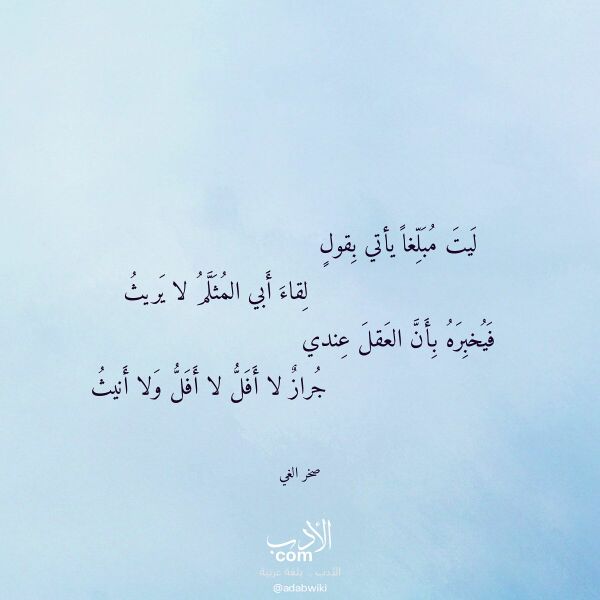 لَيتَ مُبَلِّغاً يأتي بِقولٍ
لِقاءَ أَبي المُثَلَّمُ لا يَريثُ
فَيُخبِرَهُ بِأَنَّ العَقلَ عِندي
جُرازٌ لا أَفَلُّ لا أَفَلُّ وَلا أَنيثُ
صخر الغي
الأدب
com
الأدب .. بلغة عربية
@adabwiki